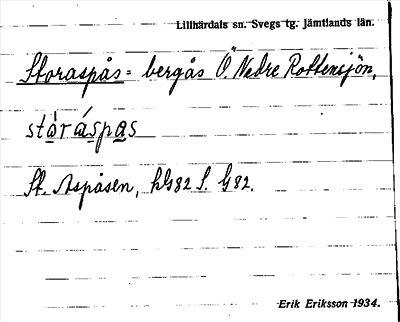 Lillhärdals sn. Svegs tg. Jämtlands län.
Storaspås = bergås Ö. Nedre Rottensjön,
stàráspas
St. Aspåsen, hls82 S. G82.
Erik Eriksson 1934.